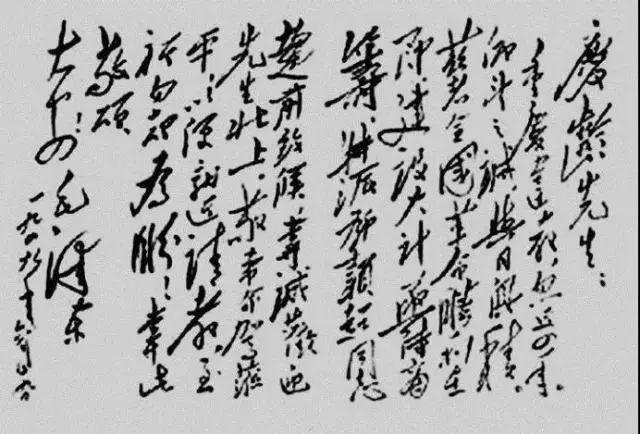 慶齡先生：
重慶違教，忽近四年。
仰望之誠，與日俱積。
茲者全國革命勝利在
即，建設大計，亟待商
籌，特派鄧穎超同志
趨前致候，專誠歡迎
先生北上。敬希命駕蒞
平，以便就近請教，至
祈勿却為盼！專此
敬頌
大安！
毛澤東
一九四九年六月十九日